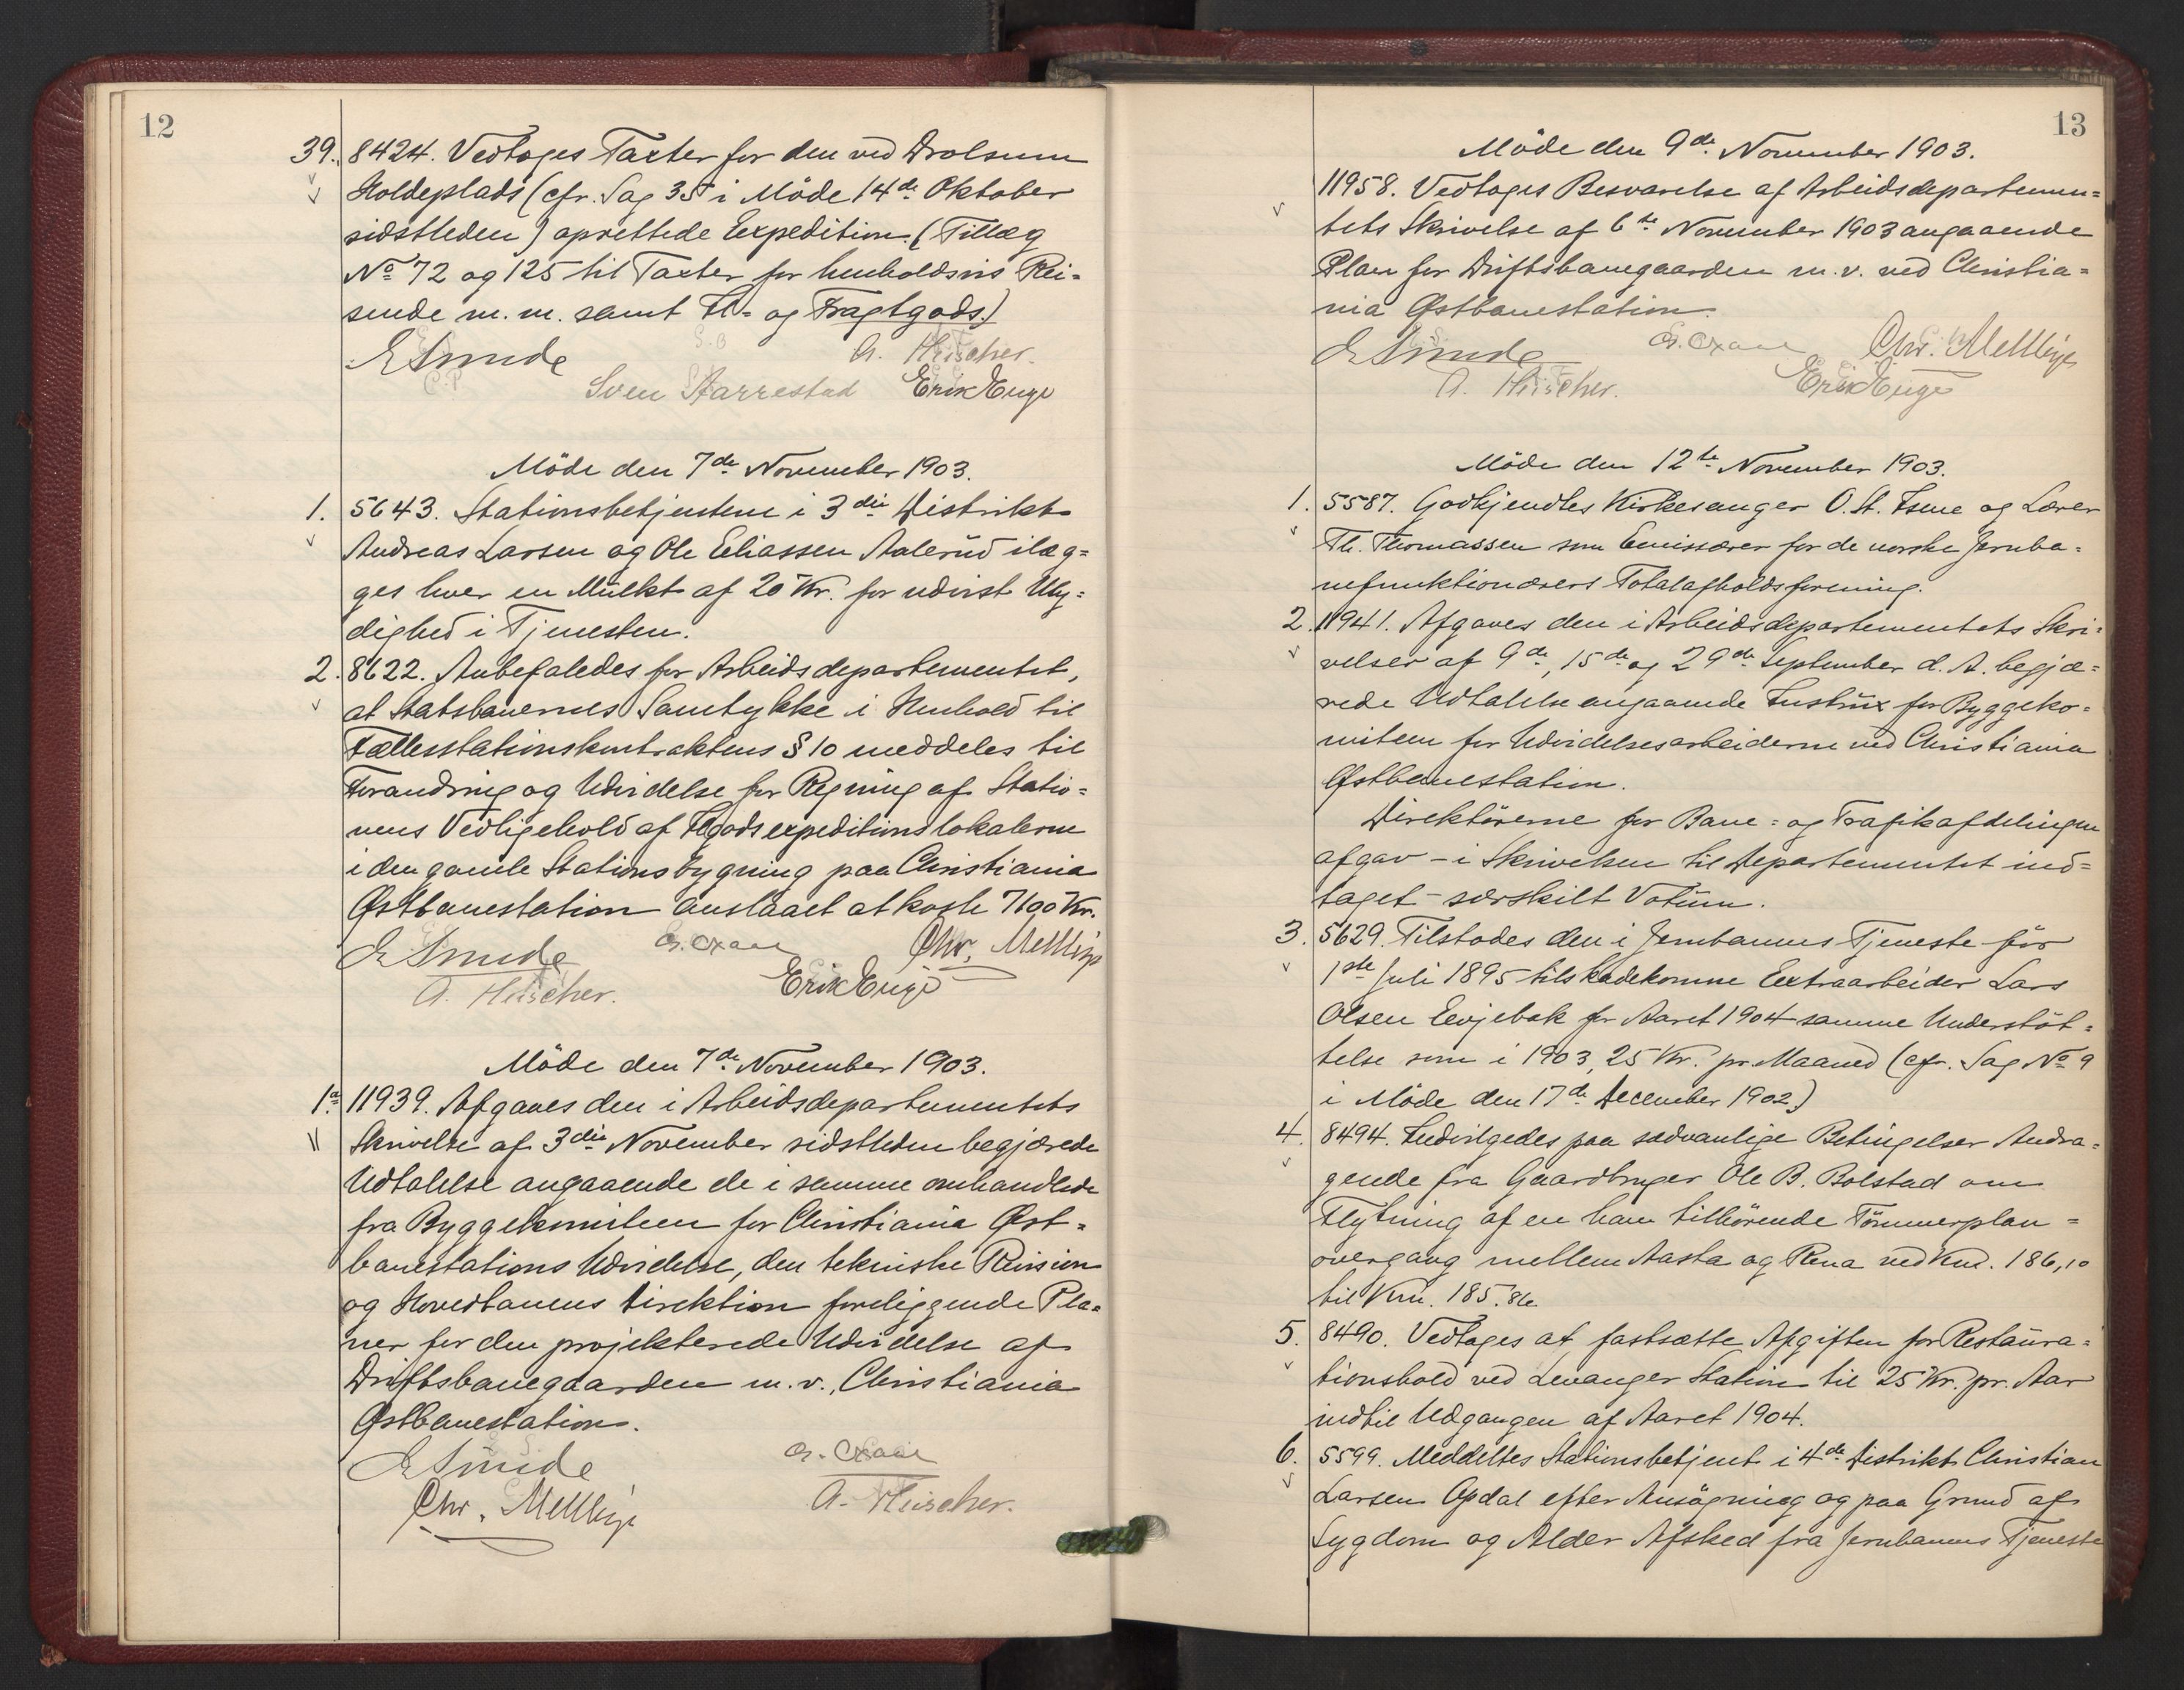 12
39. 8424. Vedtoges Taxter for den ved Drolsum
Holdeplads (cfr. Sag 35 i Möde 14de Oktober
sidstleden) oprettede Expedition. (Tillæg
No 72 og 125 til Taxter for henholdsvis Rei=
sende m. m. samt Il- og Fragtgods.)
E Sunde A. Fleischer.
Sven Aarrestad Erik Enge
Möde den 7de November 1903.
1. 5643. Stationsbetjentene i 3die Distrikt
Andreas Larsen og Ole Eliassen Aalerud ilæg=
ges hver en Mulkt af 20 Kr. for udvist Uly=
dighed i Tjenesten.
2. 8622. Anbefaledes for Arbeidsdepartementet,
at Statsbanernes Samtykke i Henhold til
Fællesstationskontraktens § 10 meddeles til
Forandring og Udvidelse for Regning af Statio=
nens Vedligehold af Ilgodsexpeditionslokalerne
i den gamle Stationsbygning paa Christiania
Østbanestation anslaaet at koste 7190 Kr.
E Sunde Chr. Mellbye
A. Fleischer. Erik Enge
Möde den 7de November 1903.
1a 11939. Afgaves den i Arbeidsdepartementets
Skrivelse af 3die November sidstleden begjærede
Udtalelse angaaende de i samme omhandlede
fra Byggekomiteen for Christiania Øst=
banestations Udvidelse, den tekniske Revision
og Hovedbanens Direktion foreliggende Pla=
ner for den projekterede Udvidelse af
Driftsbanegaarden m. v., Christiania
Østbanestation.
E Sunde
Chr. Mellbye A. Fleischer.
13
Möde den 9de November 1903.
11958. Vedtoges Besvarelse af Arbeidsdepartemen=
tets Skrivelse af 6te November 1903 angaaende
Plan for Driftsbanegaarden m. v. ved Christia=
nia Østbanestation.
E Sunde Chr. Mellbye
A. Fleischer. Erik Enge
Möde den 12te November 1903.
1. 5587. Godkjendtes Kirkesanger O. St. Isene og Lærer
Th. Thomassen som Emissærer for de norske Jernba=
nefunktionærers Totalafholdsforening.
2. 11941. Afgaves den i Arbeidsdepartementets Skri=
velser af 9de, 15de og 29de September d. A. begjæ=
rede Udtalelse angaaende Instrux for Byggeko=
miteen for Udvidelsesarbeiderne ved Christiania
Østbanestation.
Direktörerne for Bane= og Trafikafdelingen
afgav - i Skrivelsen til Departementet ind=
taget - særskilt Votum.
3. 5629. Tilstodes den i Jernbanens Tjeneste för
1ste Juli 1895 tilskadekomne Extraarbeider Lars
Olsen Evjebak for Aaret 1904 samme Understöt=
telse som i 1903, 25 Kr. pr. Maaned (cfr. Sag No 9
i Möde den 17de December 1902.)
4. 8494. Indvilgedes paa sædvanlige Betingelser Andra=
gende fra Gaardbruger Ole B. Bolstad om
Flytning af en ham tilhörende Tömmerplan=
overgang mellem Aasta og Rena ved Km. 186,10
til Km. 185.86
5. 8490. Vedtoges at fastsætte Afgiften for Restaura=
tionshold ved Levanger Station til 25 Kr. pr. Aar
indtil Udgangen af Aaret 1904.
6. 5599. Meddeltes Stationsbetjent i 4de Distrikt Christian
Larsen Opdal efter Ansögning og paa Grund af
Sygdom og Alder Afsked fra Jernbanens Tjeneste